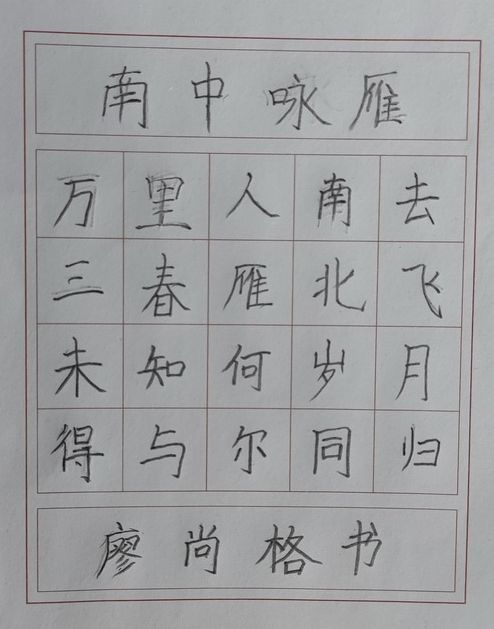 南中咏雁
万里人南去
三春雁北飞
未知何岁月
得与尔同归
廖尚格书